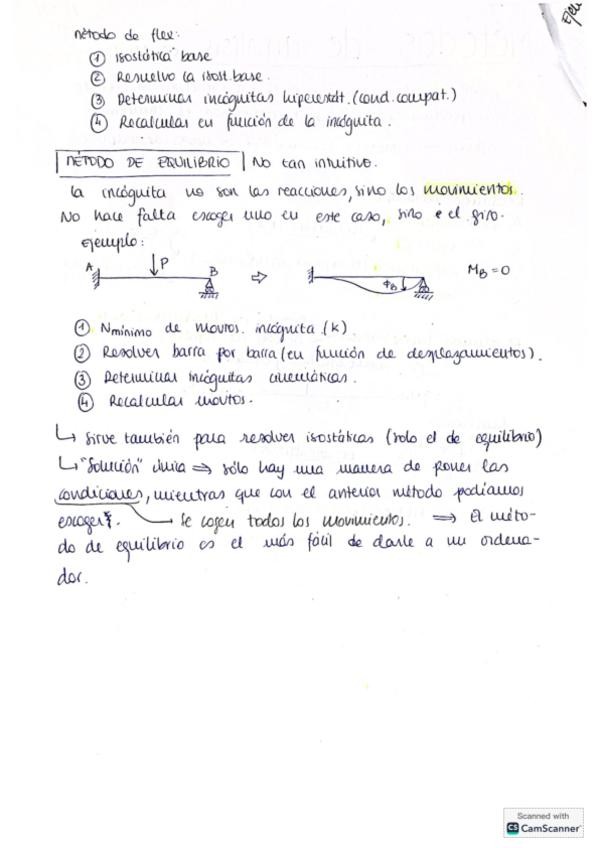 Método de flex:
① isostática base
② Resuelvo la isost. base.
③ Determinar incógnitas hiperestát. (cond. compat.)
④ Recalcular en función de la incógnita.
MÉTODO DE EQUILIBRIO No tan intuitivo.
La incógnita no son las reacciones, sino los movimientos.
No hace falta escoger uno en este caso, sino el giro.
Ejemplo:
A P B ⇨ ϕB MB = 0
① Nmínimo de movtos. incógnita (k).
② Resolver barra por barra (en función de desplazamientos).
③ Determinar incógnitas cinemáticas.
④ Recalcular movtos.
↳ Sirve también para resolver isostáticas (solo el de equilibrio)
↳ "Solución" única ⇒ sólo hay una manera de poner las
condiciones, mientras que con el anterior método podíamos
escoger. → Se cogen todos los movimientos. ⇒ El méto-
do de equilibrio es el más fácil de darle a un ordena-
dor.
Scanned with
CS CamScanner